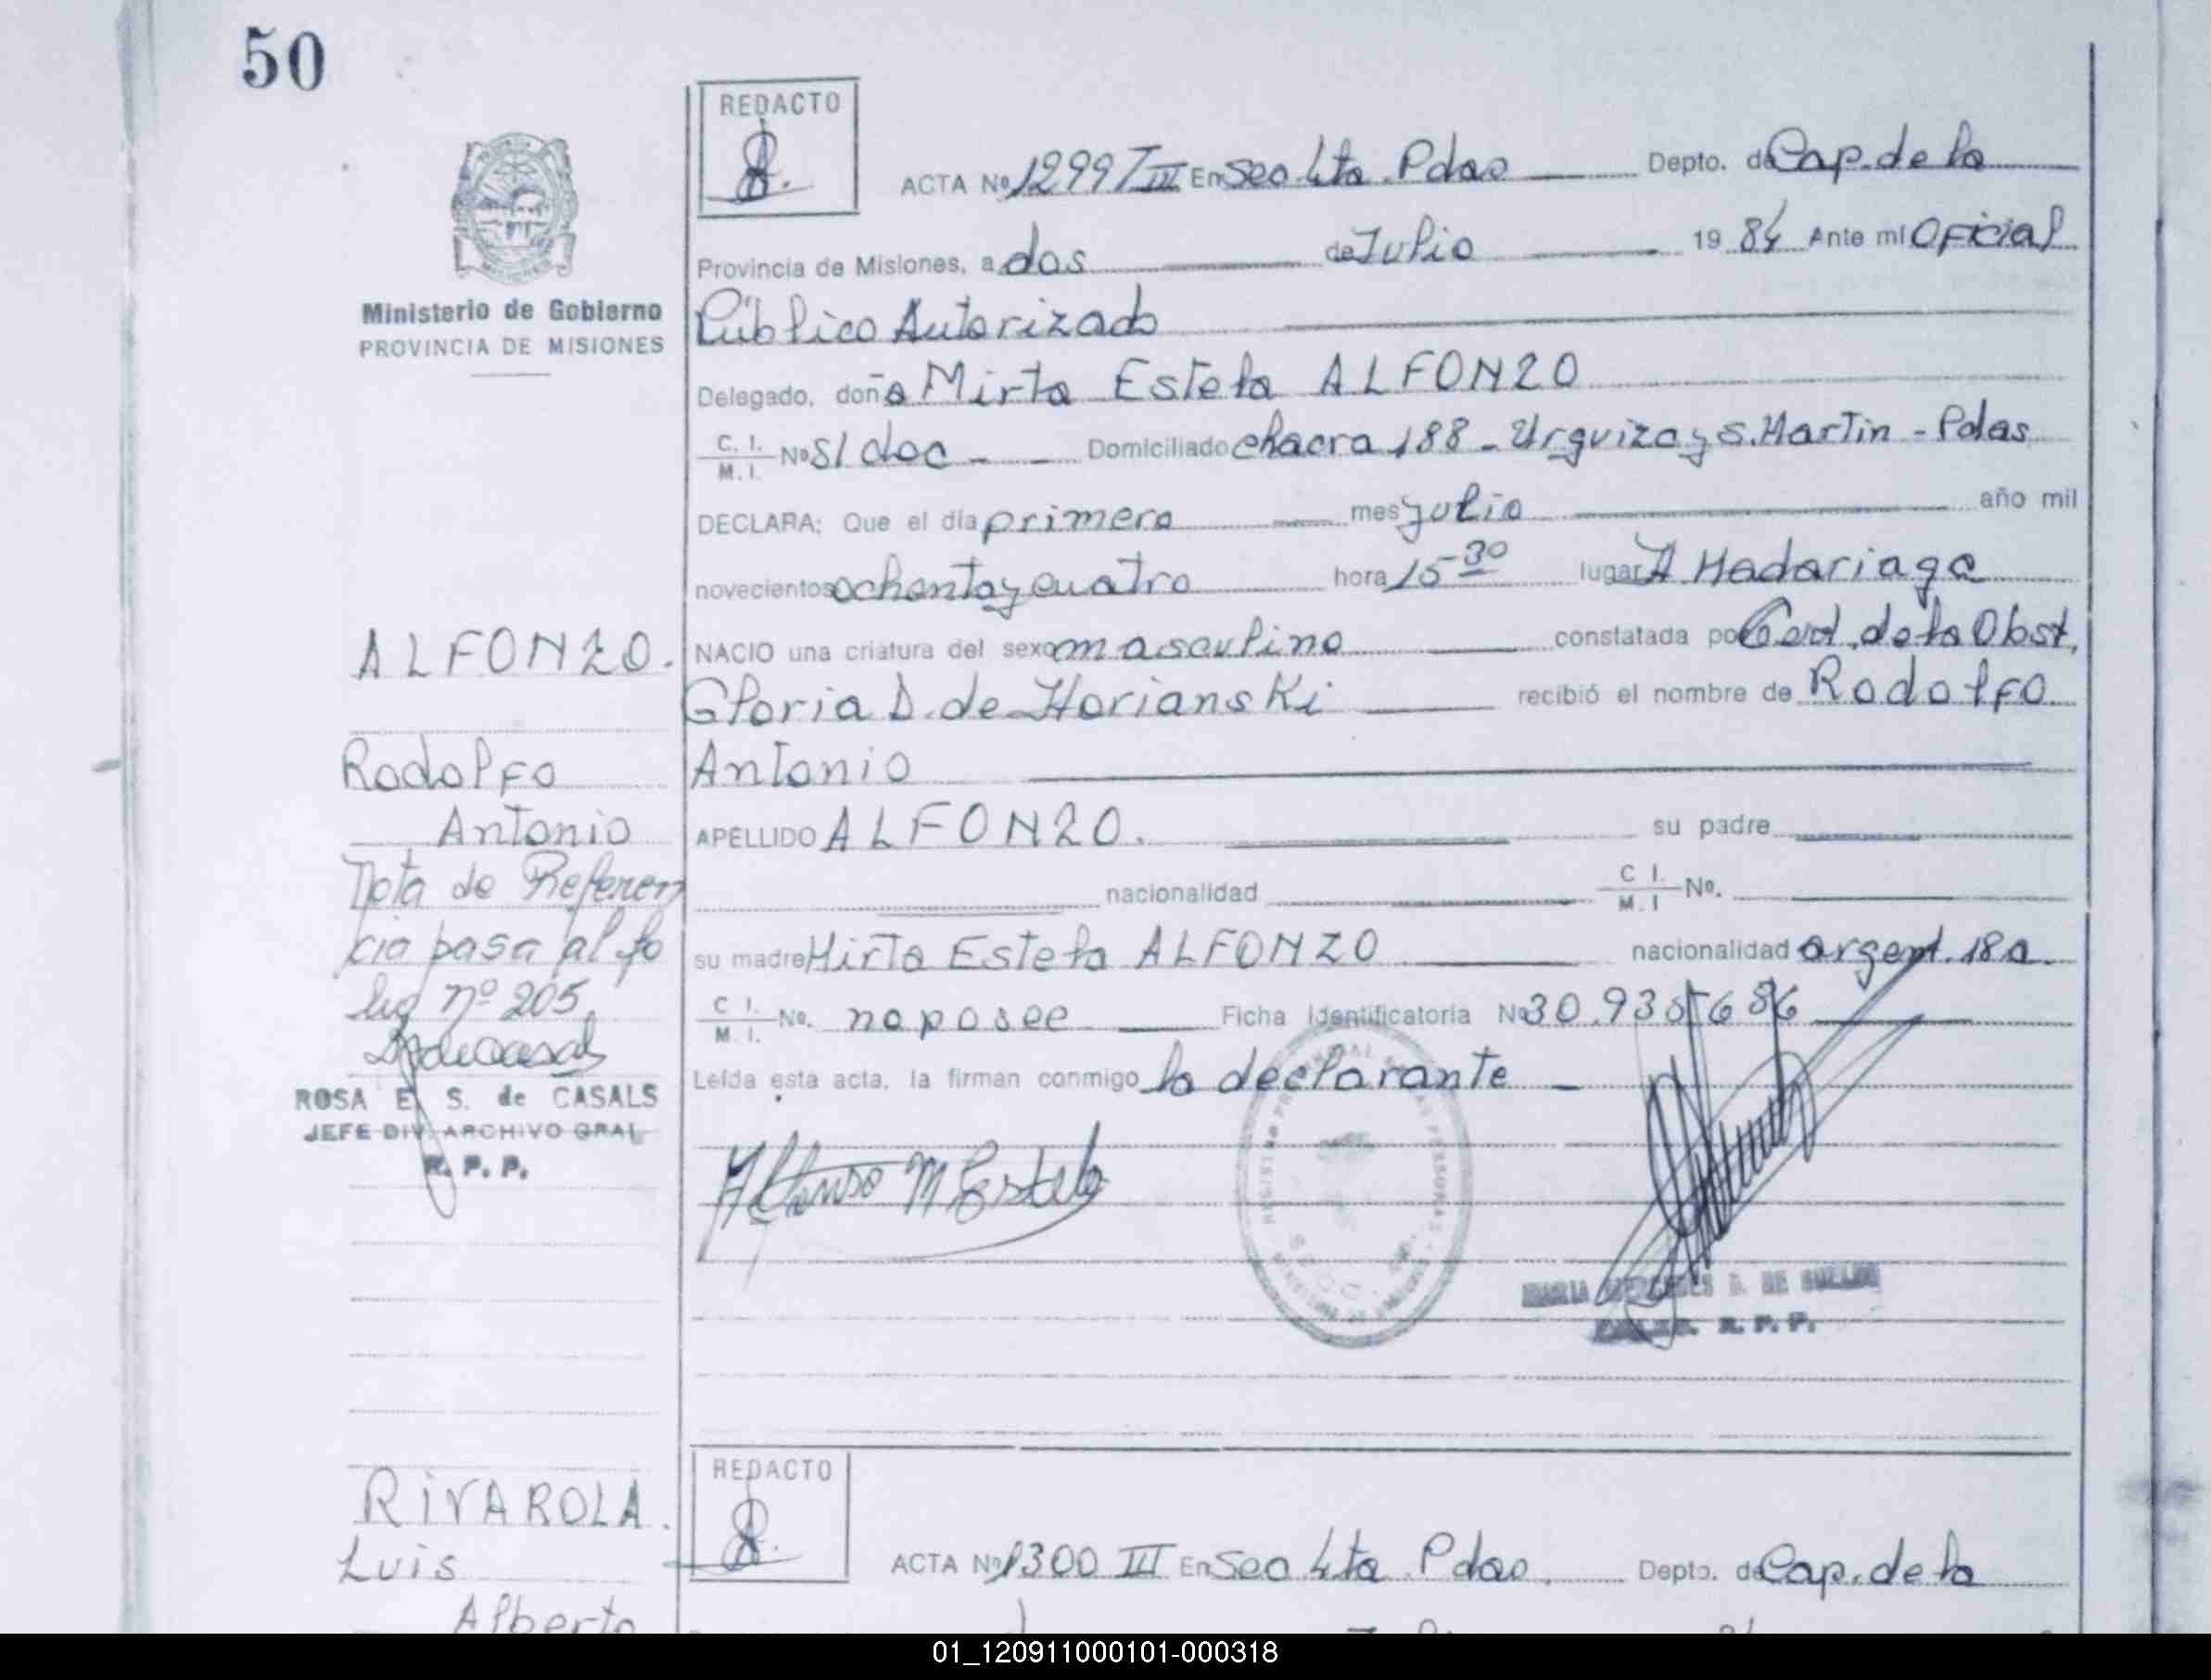 50
REDACTO
ACTA Nº 1299 T III En Sec. 4ta. Pdas Depto. de Cap. de la
Provincia de Misiones, a dos de Julio 19 84 Ante mi Oficial
Ministerio de Gobierno
PROVINCIA DE MISIONES
Público Autorizado
Delegado, doña Mirta Estela ALFONZO
C. I. M. I. Nº S/doc - Domiciliado chacra 188 - Urquiza y S. Martin - Pdas
DECLARA; Que el día primero mes julio año mil
novecientos ochenta y cuatro hora 15-30 lugar H Madariaga
ALFONZO.
NACIO una criatura del sexo masculino constatada por Cert. de la Obst.
Gloria D. de Horianski recibió el nombre de Rodolfo
Rodolfo
Antonio
Antonio
APELLIDO ALFONZO. su padre
Nota de Referen
nacionalidad C I. M. I Nº.
cia pasa al fo
su madre Mirta Estela ALFONZO nacionalidad argent. 18 a.
lio nº 205
C I. M. I. Nº. no posee Ficha Identificatoria Nº 30.935.686
Leída esta acta, la firman conmigo la declarante
ROSA E. S. de CASALS
JEFE DIV. ARCHIVO GRAL
R. P. P.
Alfonso M Estela
MARIA MERCEDES
R. P. P.
RIVAROLA.
Luis
Alberto
REDACTO
ACTA Nº 1300 III En Sec 4ta. Pdas. Depto. de Cap. de la
01_120911000101-000318